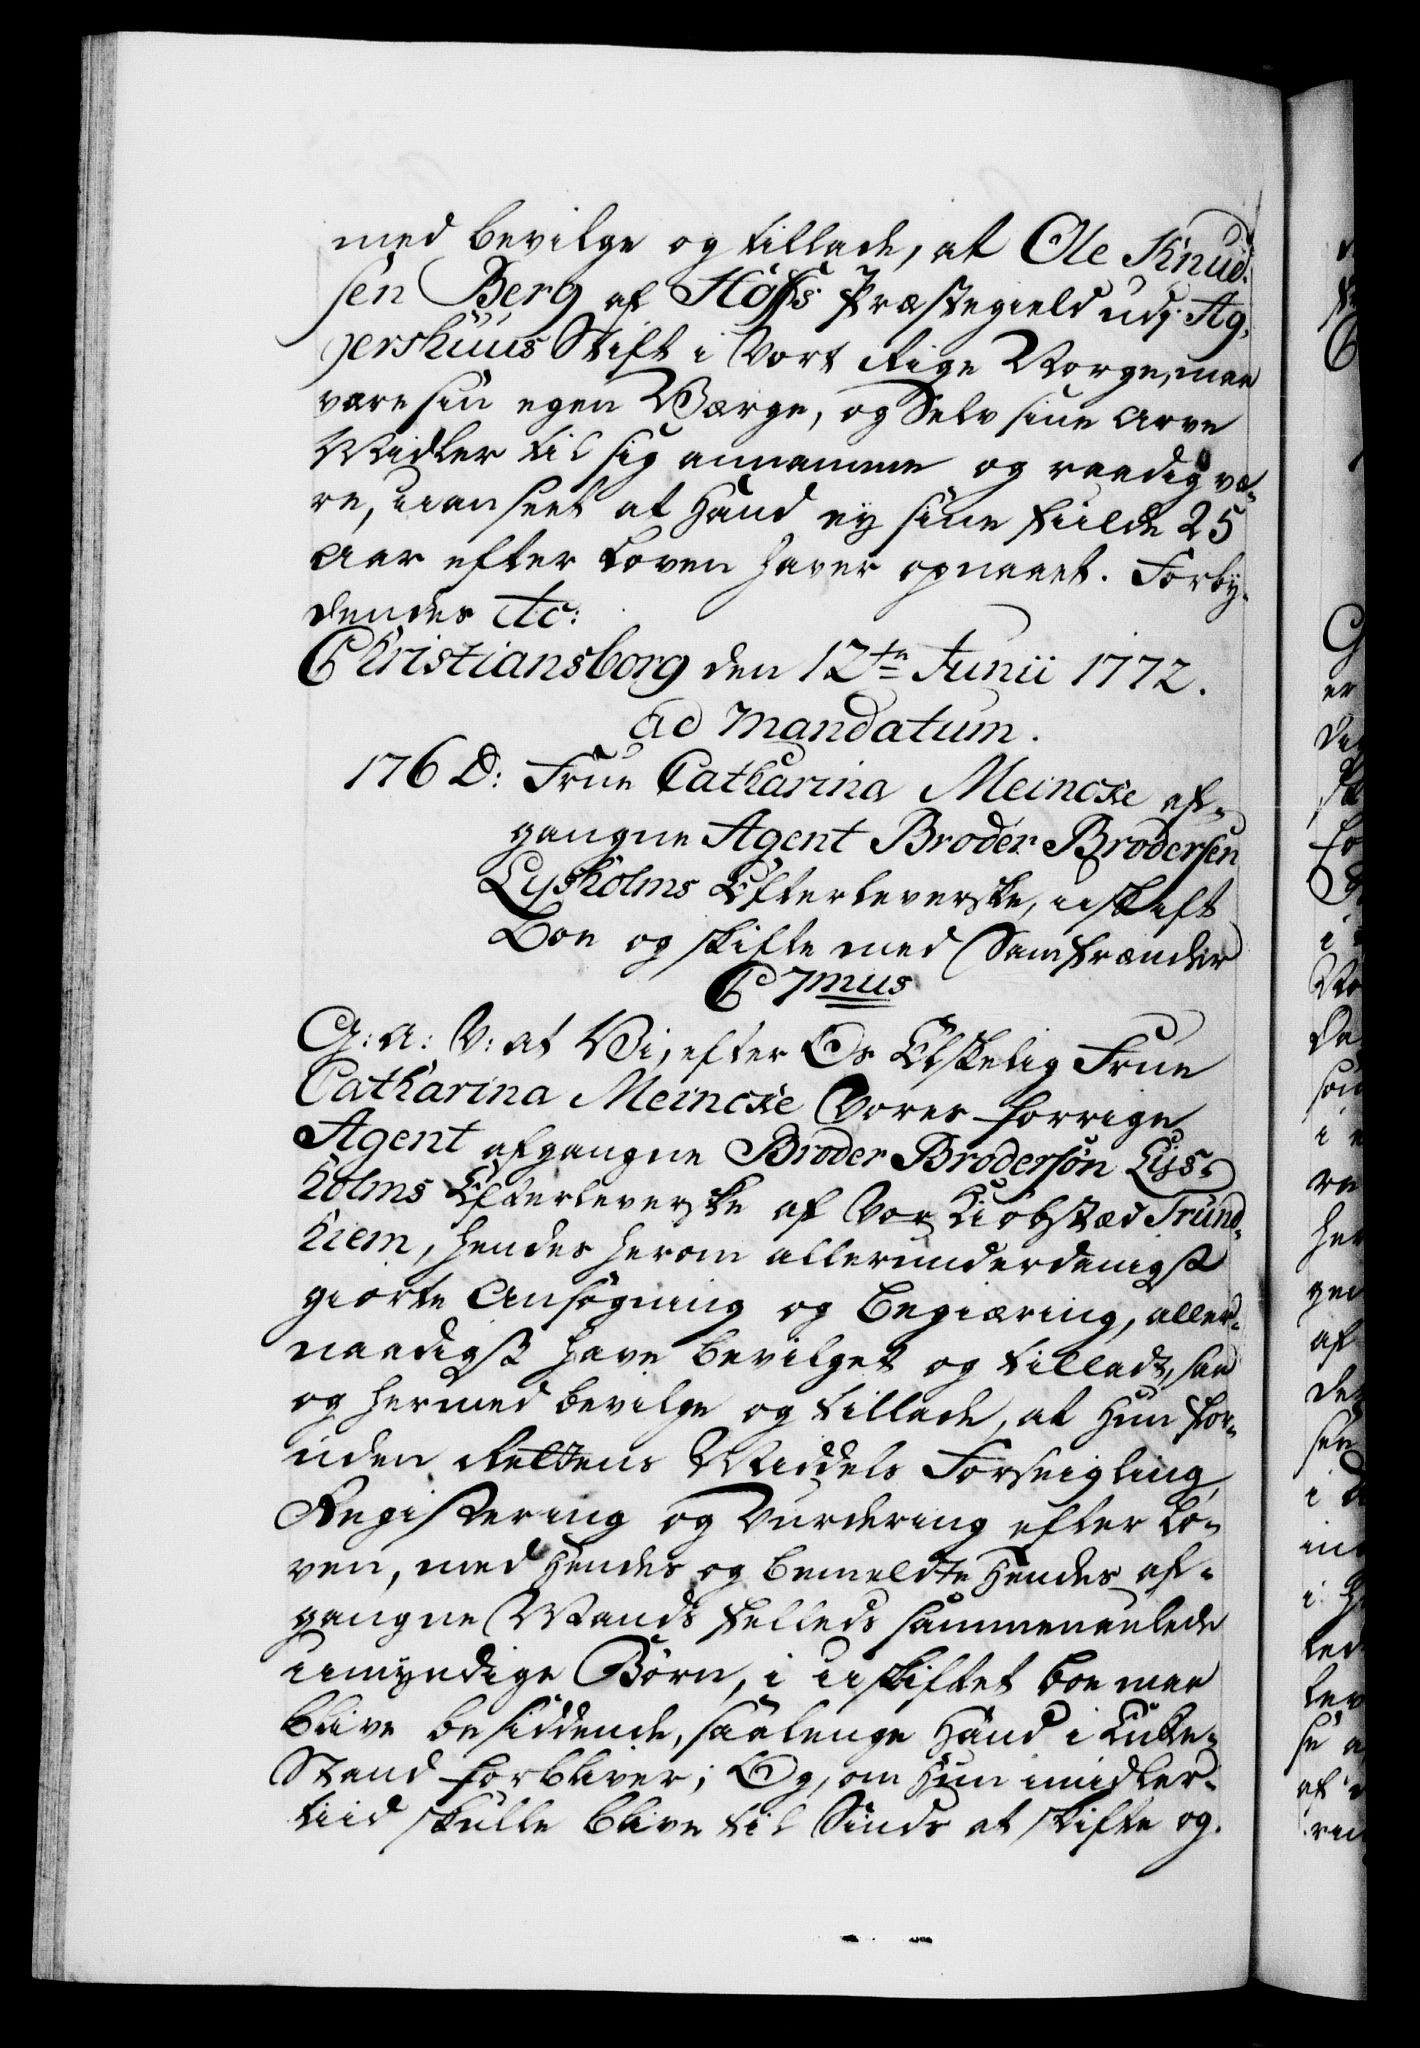 med bevilge og tillade, at Ole Knud-
sen Berg af Höffs Præstegield udj Ag,
gershuus Stift i Vort Rige Norge, maa
være sin egen Værge, og Selv sine Arve
Midler til sig annamme og raadig væ-
re, uanseet at Hand ey sine fulde 25
Aar efter Loven haver opnaaet. Forby-
dendes etc:
Christiansborg den 12te Junii 1772.
ad mandatum.
176 D: Frue Catharina Meincke af-
gangne Agent Broder Brodersen
Lysholms Efterleverske, uskift
Boe og skifte med Samfrænder
C 7mus
G: a: V: at Vi, efter Os Elskelig Frue
Catharina Meincke Vores forrige
Agent afgangne Broder Brodersøn Lys-
holms Efterleverske af Vor Kiøbstæd Trund-
hiem, hendes herom allerunderdanigst
giorte Ansøgning og Begiæring, aller-
naadigst have bevilget og tilladt, saa
og hermed bevilge og tillade, at Hun for-
uden Rettens Middels Forseigling,
Registering og Vurdering efter Lo-
ven, med Hendes og bemeldte Hendes af-
gangne Mands felleds sammenaulede
umyndige Børn, i uskiftet boe maa
blive besiddende, saalenge Hand i Enke-
Stand forbliver; Og, om Hun imidler-
tiid skulle blive til Sinds at skifte og